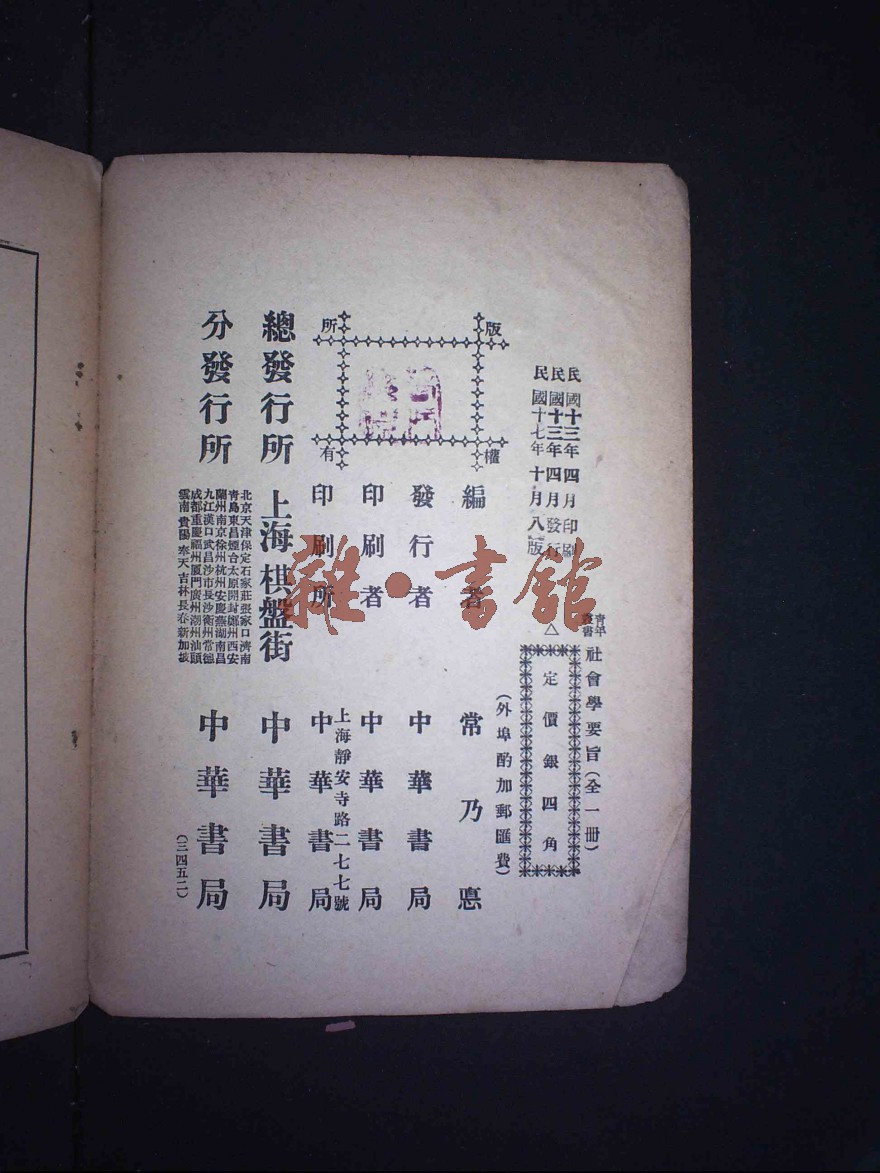 民國十三年四月印刷
民國十三年四月發行
民國十七年十月八版
青年
叢書
社會學要旨(全一冊)
△
定價銀四角
(外埠酌加郵匯費)
版權所有
編者 常乃惪
發行者 中華書局
印刷者 中華書局
上海靜安寺路二七七號
印刷所 中華書局
總發行所 上海棋盤街 中華書局
分發行所
北京天津保定石家莊張家口濟南
青島東昌煙台太原開封鄭州西安
蘭州南京徐州杭州安慶蕪湖南昌
九江漢口武昌沙市長沙衡州常德
成都重慶福州廈門廣州潮州汕頭
雲南貴陽奉天吉林長春新加坡
中華書局
(三四五二)
雜·書館